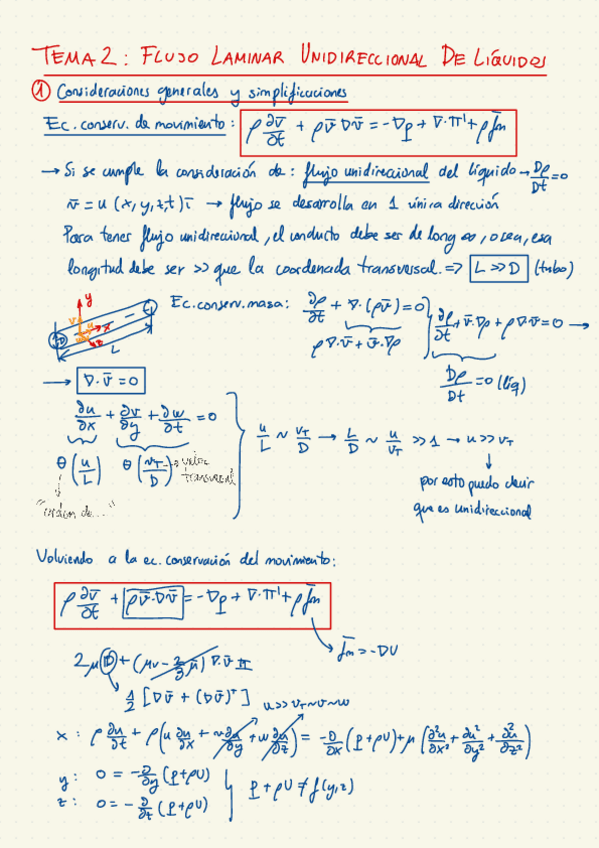 TEMA 2: FLUJO LAMINAR UNIDIRECCIONAL DE LÍQUIDOS
① Consideraciones generales y simplificaciones
Ec. conserv. de movimiento: ρ ∂v̄/∂t + ρv̄·∇v̄ = -∇p + ∇·π' + ρf̄m
→ Si se cumple la consideración de: flujo unidireccional del líquido → Dρ/Dt = 0
v̄ = u (x,y,z,t) ī → flujo se desarrolla en 1 única dirección
Para tener flujo unidireccional, el conducto debe ser de long ∞, o sea, esa
longitud debe ser >> que la coordenada transversal. => L >> D (tubo)
y
v
u
x
z
w
D
L
Ec. conserv. masa: ∂ρ/∂t + ∇·(ρv̄) = 0
ρ∇·v̄ + v̄·∇ρ
∂ρ/∂t + v̄·∇ρ + ρ∇·v̄ = 0 →
Dρ/Dt = 0 (líq)
→ ∇·v̄ = 0
∂u/∂x + ∂v/∂y + ∂w/∂t = 0
θ(u/L) θ(vT/D) → valor transversal
"orden de..."
u/L ~ vT/D → L/D ~ u/vT >> 1 → u >> vT
por esto puedo decir
que es unidireccional
Volviendo a la ec. conservación del movimiento:
ρ ∂v̄/∂t + ρv̄·∇v̄ = -∇p + ∇·π' + ρf̄m
f̄m = -∇U
2μD + (μv - 2/3 μ) ∇·v̄ II
1/2 [∇v̄ + (∇v̄)ᵀ]
u >> vT ~ v ~ w
x: ρ ∂u/∂t + ρ(u ∂u/∂x + v ∂u/∂y + w ∂u/∂z) = -∂/∂x (p+ρU) + μ (∂²u/∂x² + ∂u²/∂y² + ∂²u/∂z²)
y: 0 = -∂/∂y (p+ρU)
z: 0 = -∂/∂z (p+ρU)
p + ρU ≠ f(y,z)